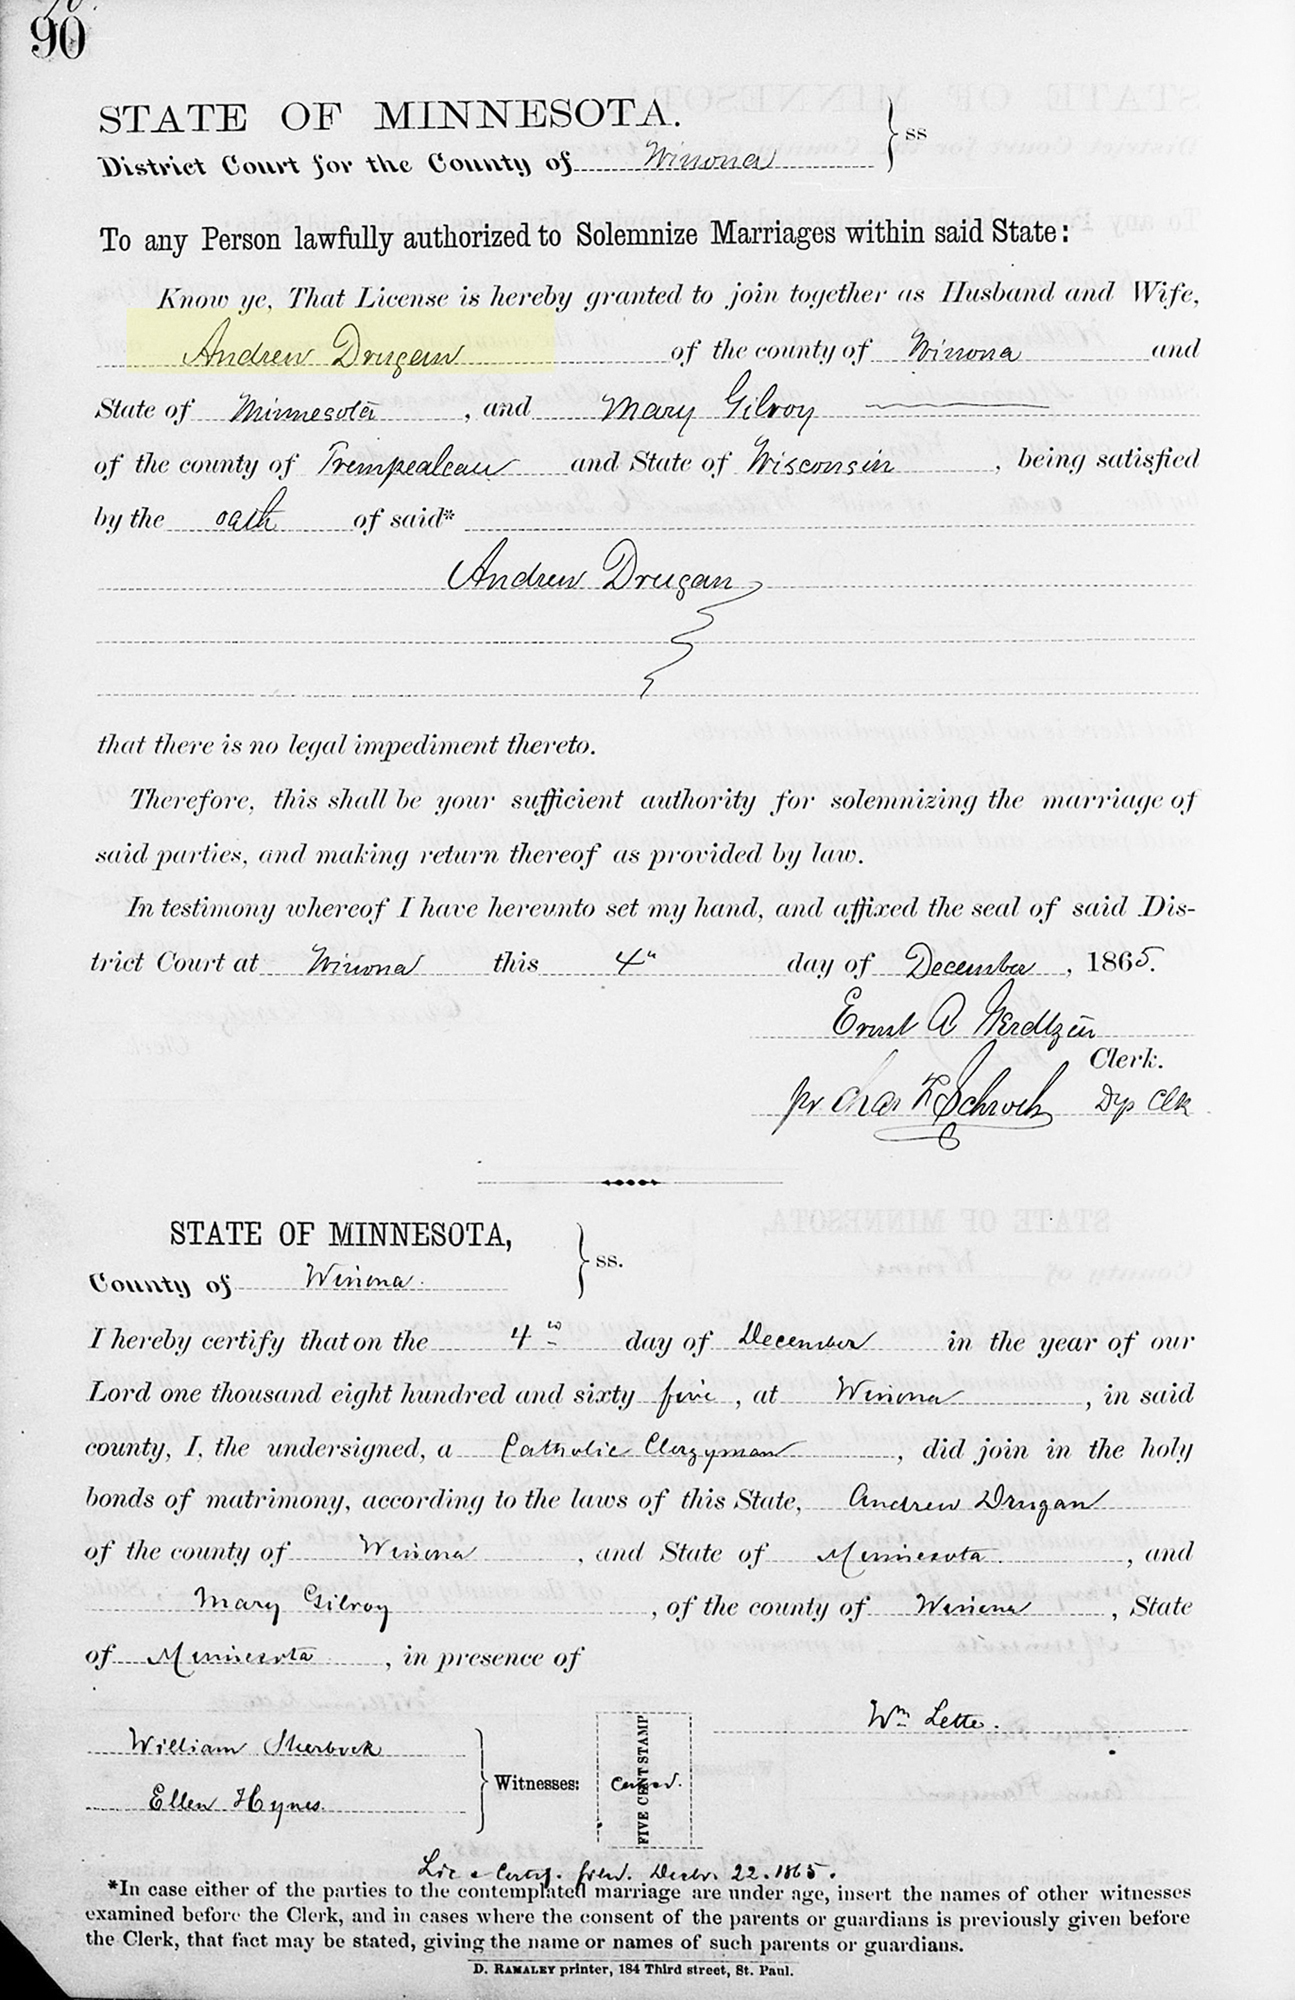 90
STATE OF MINNESOTA. } ss
District Court for the County of Winona
To any Person lawfully authorized to Solemnize Marriages within said State:
Know ye, That License is hereby granted to join together as Husband and Wife,
Andrew Drugan of the county of Winona and
State of Minnesota, and Mary Gilroy
of the county of Trempealeau and State of Wisconsin, being satisfied
by the oath of said*
Andrew Drugan
that there is no legal impediment thereto.
Therefore, this shall be your sufficient authority for solemnizing the marriage of
said parties, and making return thereof as provided by law.
In testimony whereof I have hereunto set my hand, and affixed the seal of said Dis-
trict Court at Winona this 4" day of December, 1865.
Ernst A Gerdtzen
Clerk.
pr Chas F Schroth Dep Clk
STATE OF MINNESOTA, } ss.
County of Winona.
I hereby certify that on the 4th day of December in the year of our
Lord one thousand eight hundred and sixty five, at Winona, in said
county, I, the undersigned, a Catholic Clergyman, did join in the holy
bonds of matrimony, according to the laws of this State, Andrew Drugan
of the county of Winona, and State of Minnesota, and
Mary Gilroy, of the county of Winona, State
of Minnesota, in presence of
Wm Lette.
William Sherbock
Ellen Hynes. } Witnesses:
FIVE CENT STAMP
Lic & Certif. filed. Decbr. 22. 1865.
*In case either of the parties to the contemplated marriage are under age, insert the names of other witnesses
examined before the Clerk, and in cases where the consent of the parents or guardians is previously given before
the Clerk, that fact may be stated, giving the name or names of such parents or guardians.
D. RAMALEY printer, 184 Third street, St. Paul.